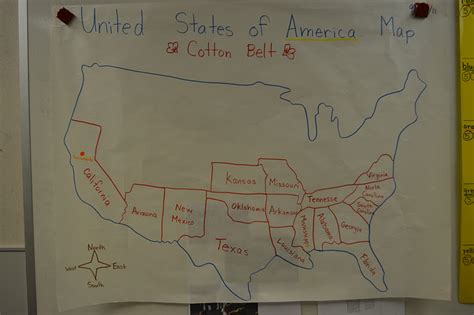 United States of America Map
Cotton Belt
California
Arizona
New
Mexico
Texas
Kansas
Oklahoma
Missouri
Arkansas
Louisiana
Tennesse
Mississippi
Alabama
Georgia
Florida
Virginia
North
Carolina
South
Carolina
North
West
East
South